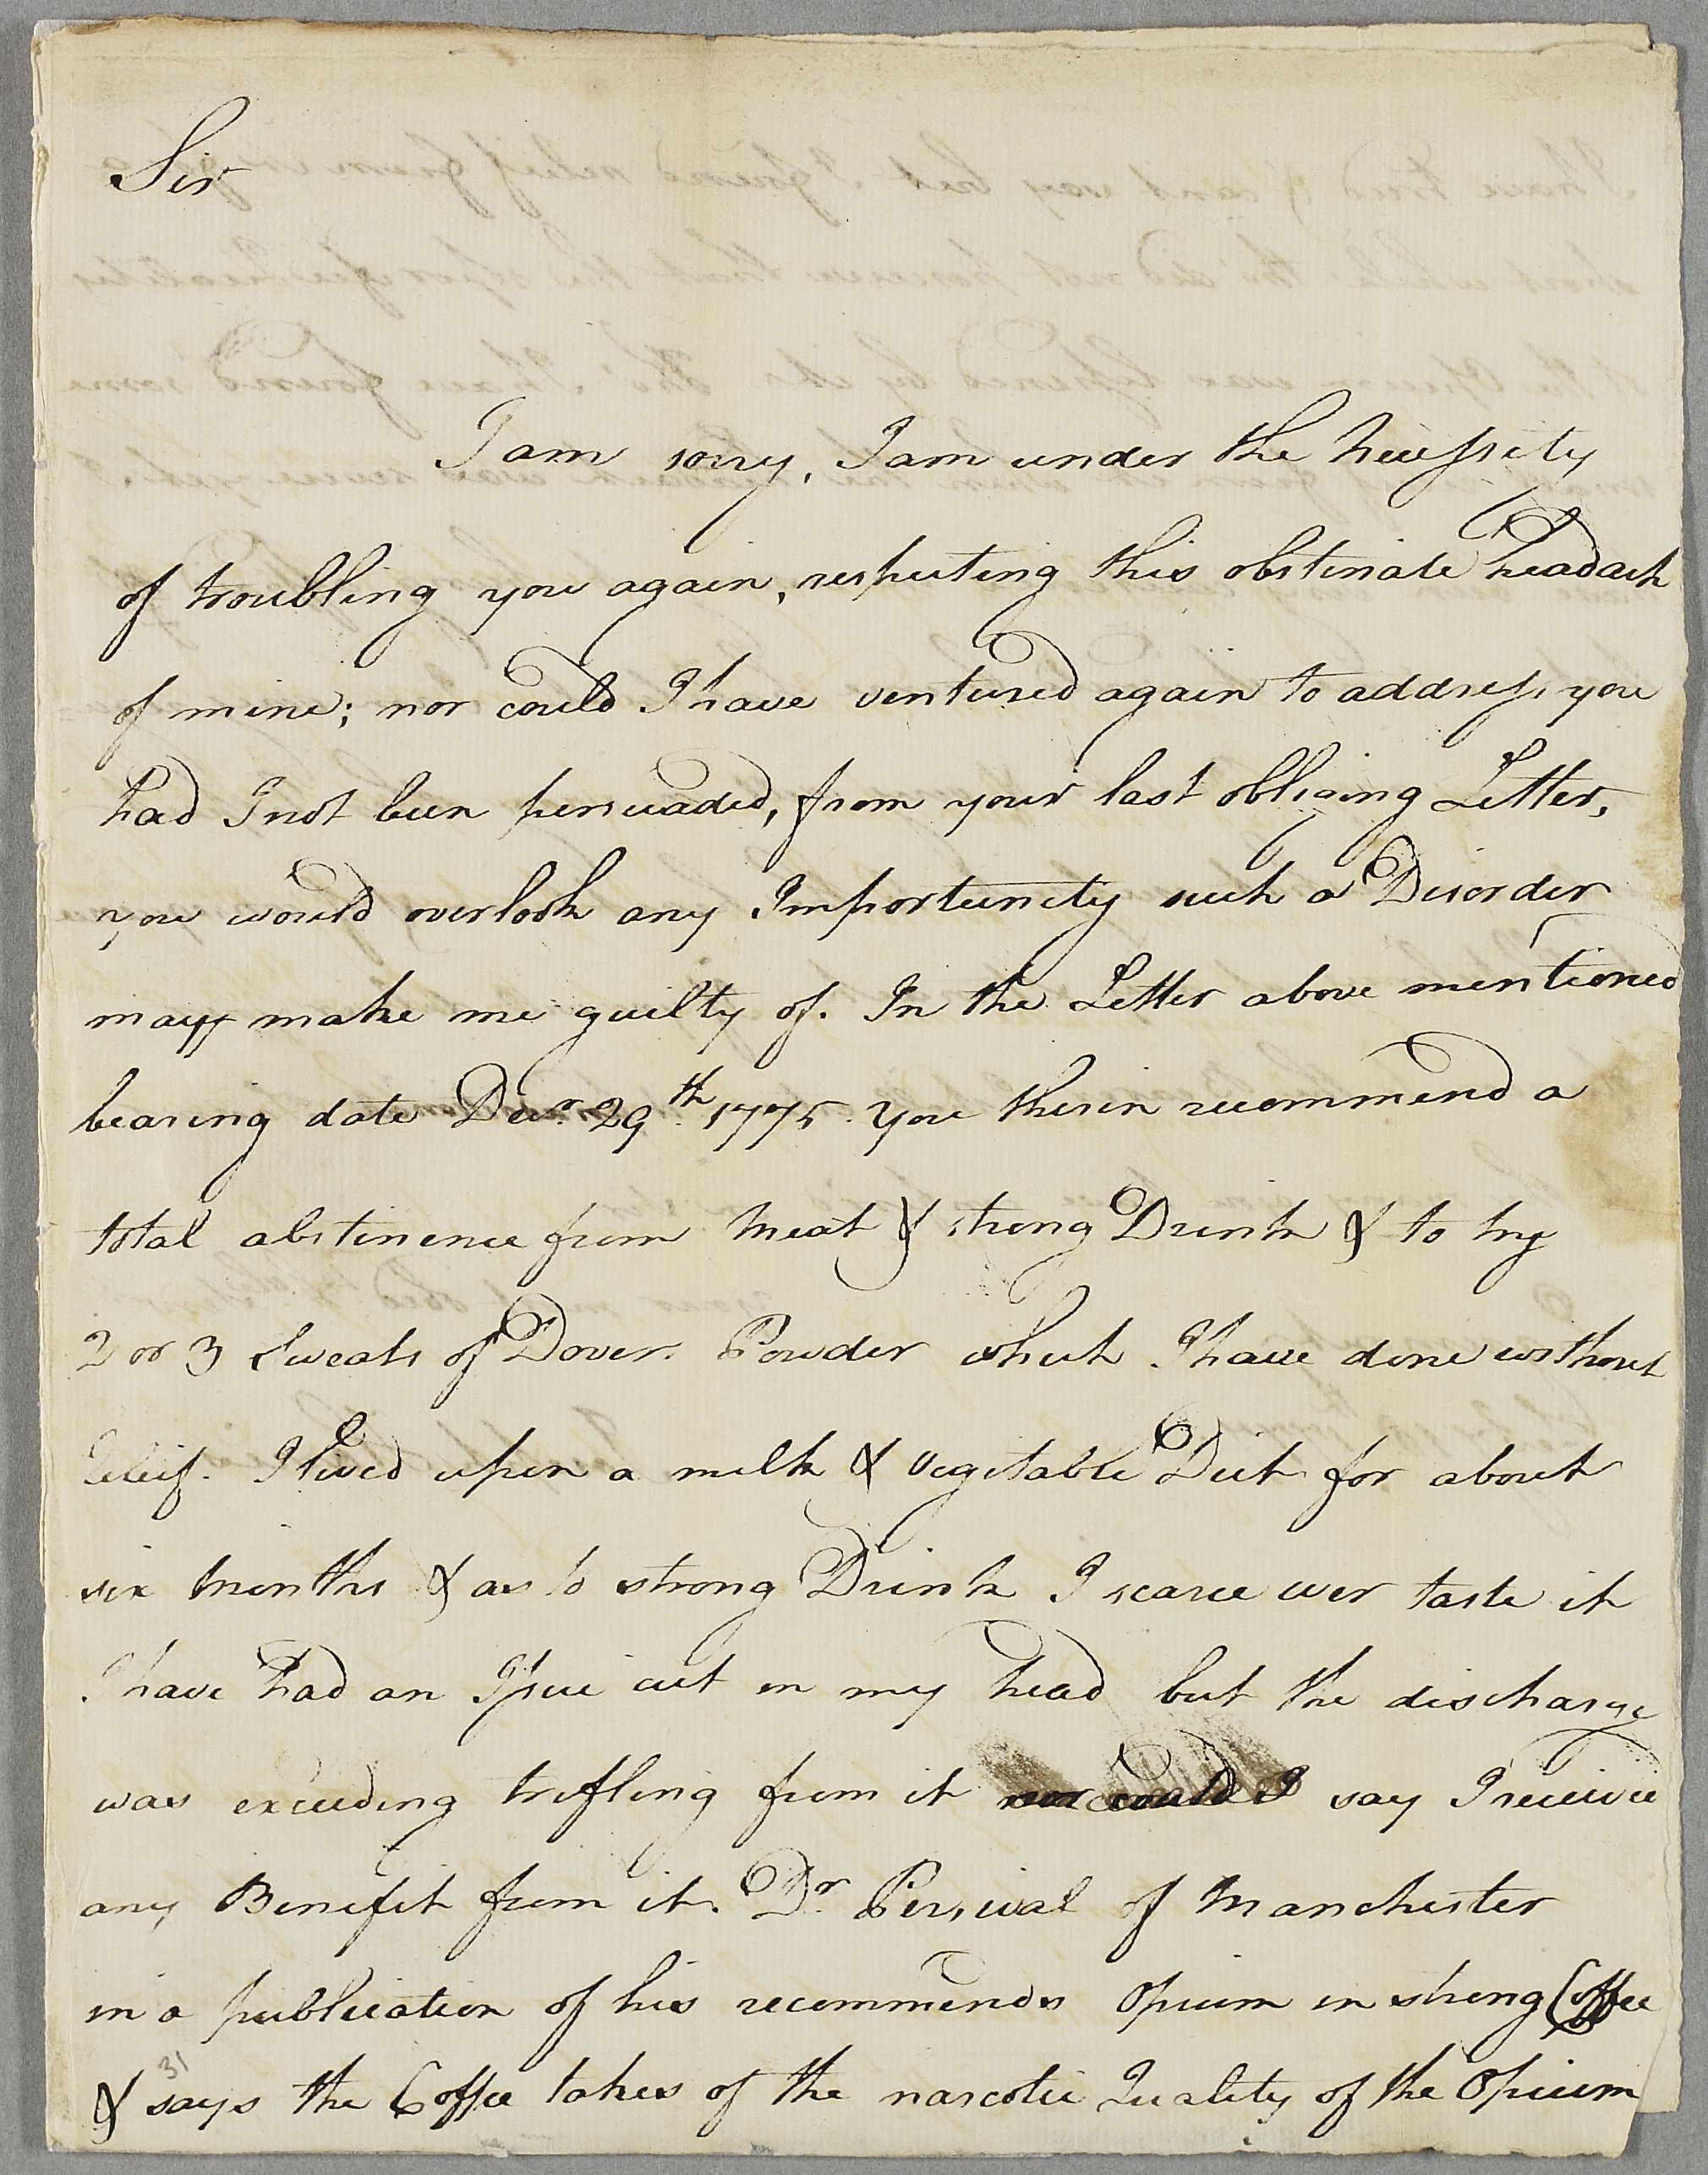 Sir
I am sorry, I am under the Necessity
of troubling you again, respecting this obstinate headach
of mine; nor could I have ventured again to address you
had I not been persuaded, from your last obliging Letter,
you would overlook any Importunity such a Disorder
may make me guilty of. In the Letter above mentioned
bearing date Decr. 29th. 1775. you therin recommend a
total abstinence from Meat & strong Drink & to try
2 or 3 Sweats of Dovers Powder which I have done without
Releif. I lived upon a milk & vegitable Diet for about
six Months & as to strong Drink I scarce ever taste it
I have had an Issue cut in my head but the discharge
was exceeding trifling from it nor could I say I receivd
any Benefit from it. Dr. Persival of Manchester
in a publication of his recommends Opium in strong Coffee
& says the Coffee takes of the narcotic Quality of the Opium
31